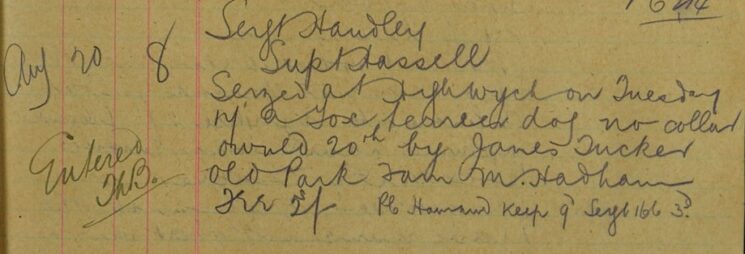 Sergt Handley
Aug 20 8 Supt Hassell
Seized at Highwych on Tuesday
a Fox terrier dog no collar
Entered owned 20th by James Tucker
Old Park Farm M. Hadham
Keep 9d Sergt 166 3d